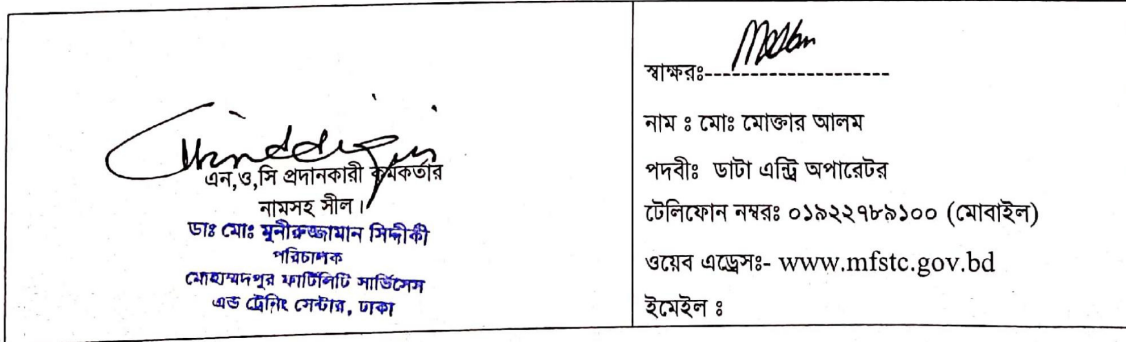 এন,ও,সি প্রদানকারী কর্মকর্তার
নামসহ সীল।
ডাঃ মোঃ মুনীরুজ্জামান সিদ্দীকী
পরিচালক
মোহাম্মদপুর ফার্টিলিটি সার্ভিসেস
এন্ড ট্রেনিং সেন্টার, ঢাকা
স্বাক্ষরঃ--------------------
নাম ঃ মোঃ মোক্তার আলম
পদবীঃ ডাটা এন্ট্রি অপারেটর
টেলিফোন নম্বরঃ ০১৯২২৭৮৯১০০ (মোবাইল)
ওয়েব এড্রেসঃ- www.mfstc.gov.bd
ইমেইল ঃ